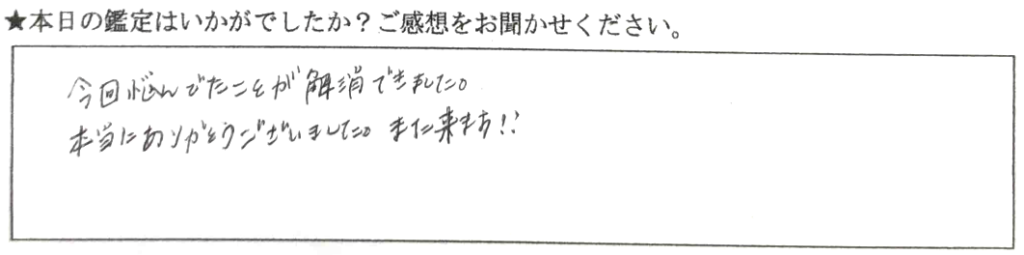 ★本日の鑑定はいかがでしたか？ご感想をお聞かせください。
今回悩んでたことが解消できました。
本当にありがとうございました。また来ます!!